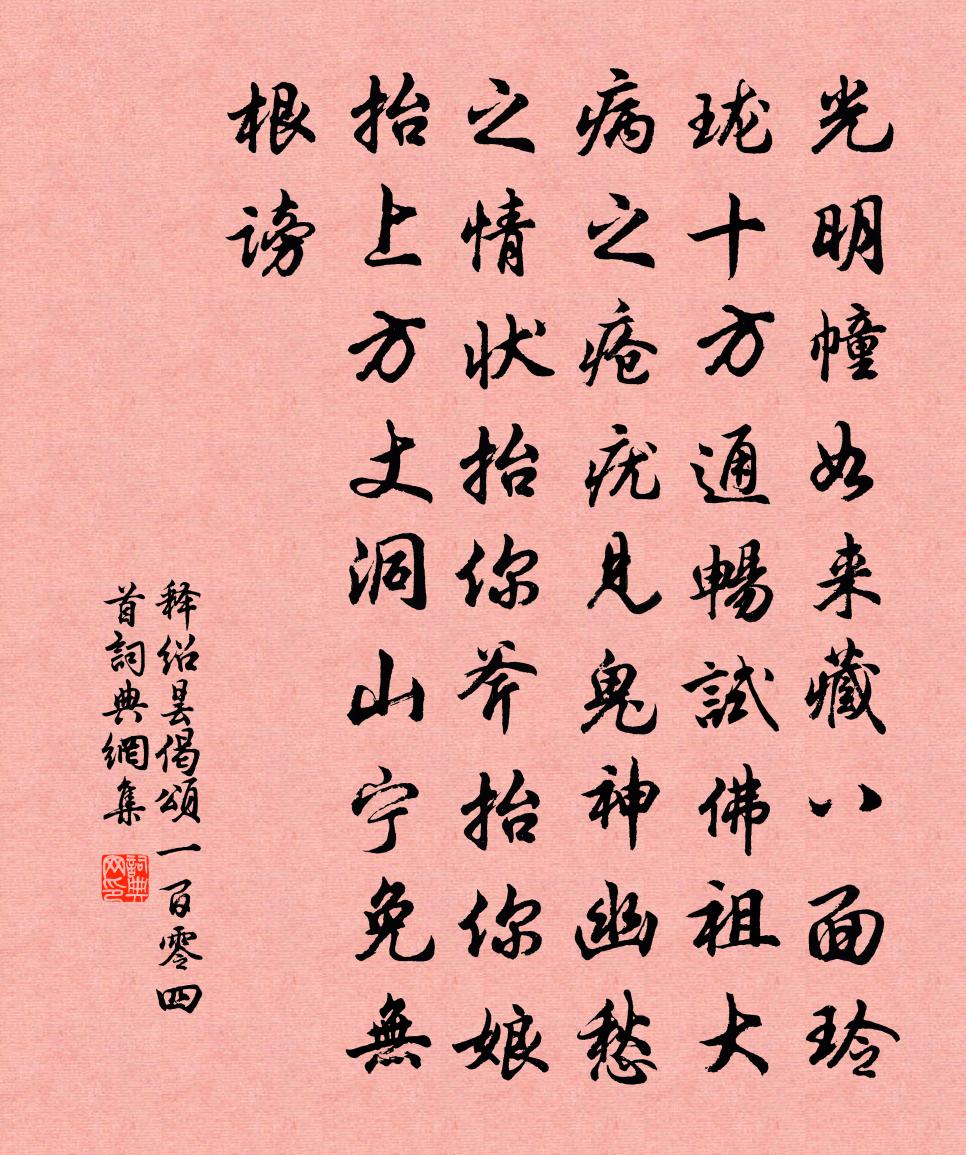 光明幢如来藏八面玲
珑十方通暢試佛祖大
病之疮疣見鬼神幽愁
之情状抬你斧抬你娘
抬上方丈洞山宁免無
根謗
释绍昙偈頌一百零四
首詞典網集
詞典网印